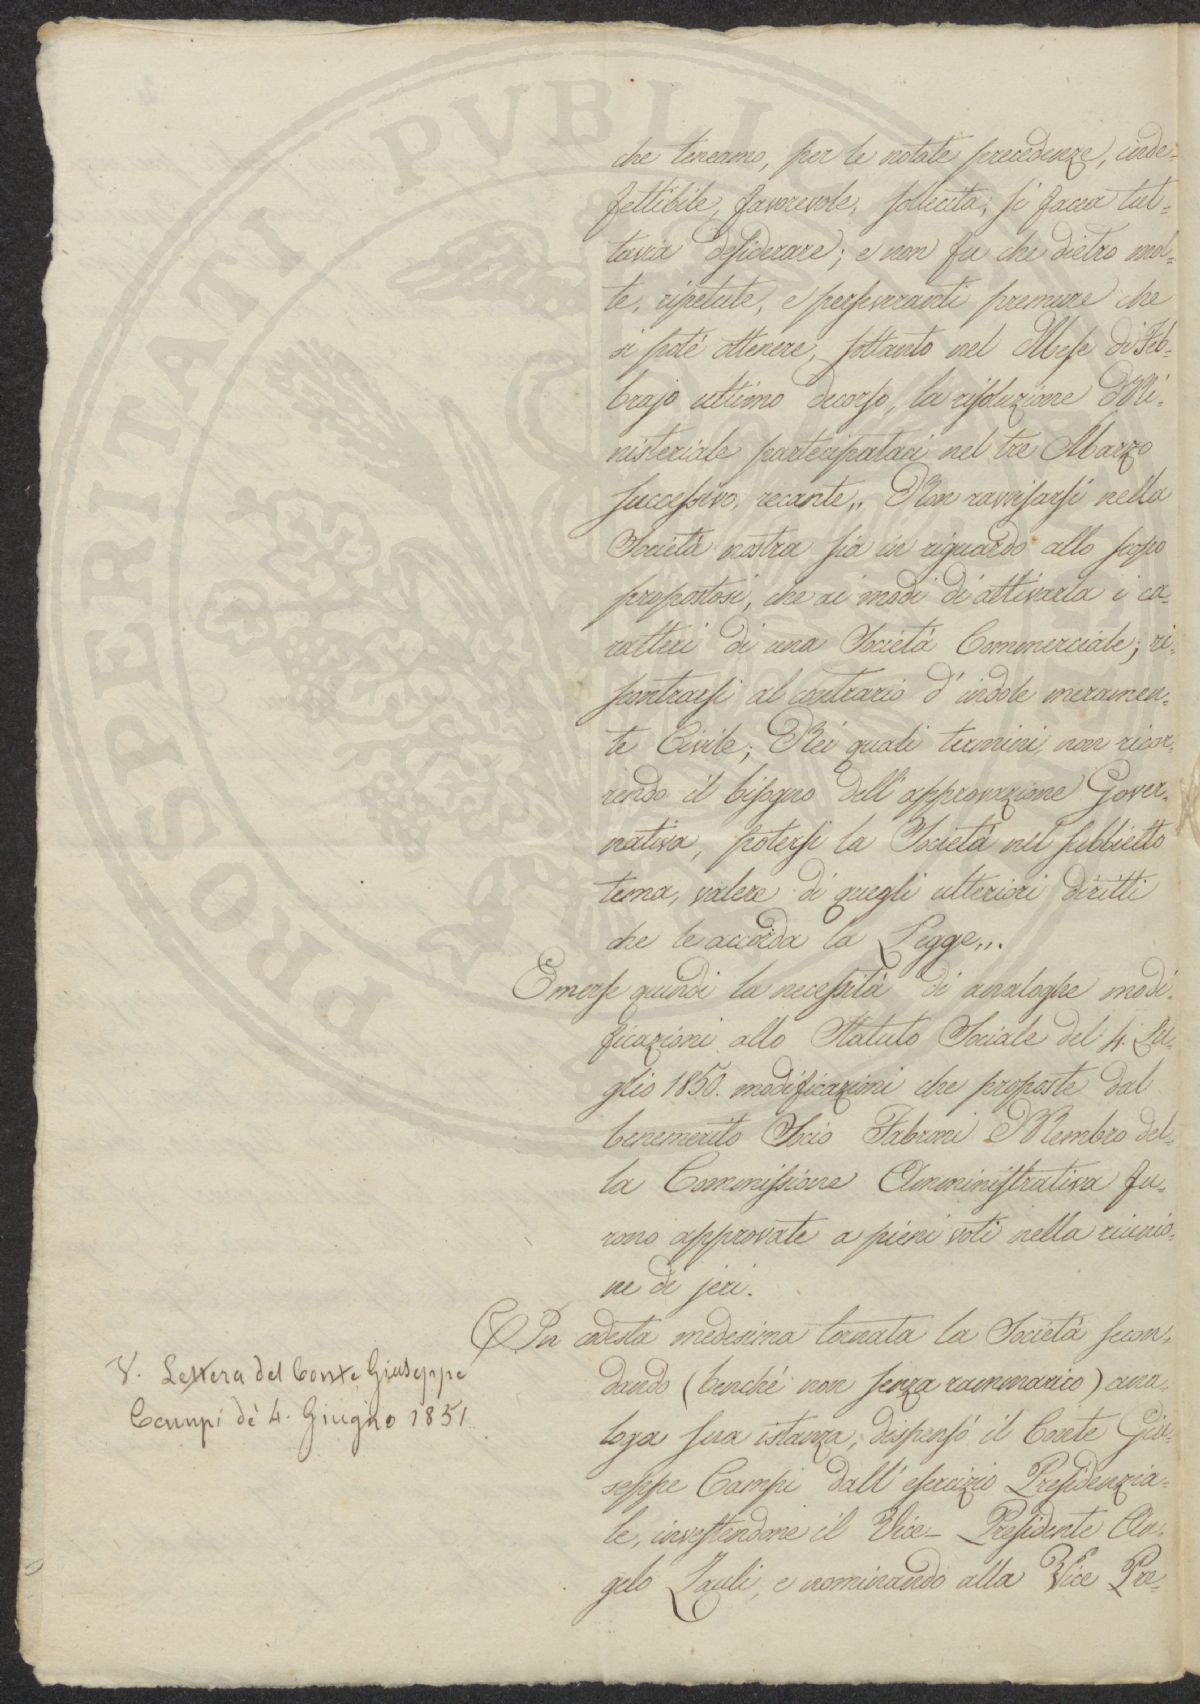 PROSPERITATI PVBLIC
che teneamo, per le notate precedenze, inde-
fettibile, favorevole, sollecita; si facea tut-
tavia desiderare; e non fu che dietro mol-
te, ripetute, e perseveranti premure che
si poté ottenere, soltanto nel Mese di Feb-
brajo ultimo decorso, la risoluzione Mi-
nisteriale partecipataci nel tre Marzo
successivo, recante,, Non ravvisarsi nella
Società nostra sia in riguardo allo scopo
propostosi, che ai modi di attivarla i ca-
ratteri di una Società Commerciale; ri-
scontrarsi al contrario d'indole meramen-
te Civile; Nei quali termini, non ricor-
rendo il bisogno dell'approvazione Gover-
nativa, potersi la Società nel subbietto
tema, valere di quegli ulteriori diritti
che le accorda la Legge,,.
Emerse quindi la necessità di analoghe modi-
ficazioni allo Statuto Sociale del 4. Lu-
glio 1850. modificazioni che proposte dal
benemerito Socio Fabroni Membro del-
la Commissione Amministrativa fu-
rono approvate a pieni voti nella riunio-
ne di jeri.
In codesta medesima tornata la Società secon-
dando (benché non senza rammarico) ana-
loga sua istanza, dispensò il Conte Giu-
seppe Campi dall'esercizio Presidenzia-
le, investendone il Vice-Presidente An-
gelo Pauli, e nominando alla Vice Pre-
V. Lettera del Conte Giuseppe
Campi de' 4. Giugno 1851